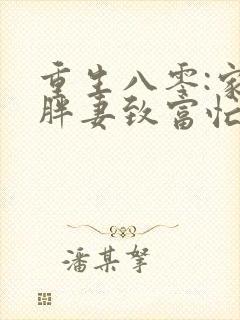 重生八零:家
胖妻致富忙
潘某拏